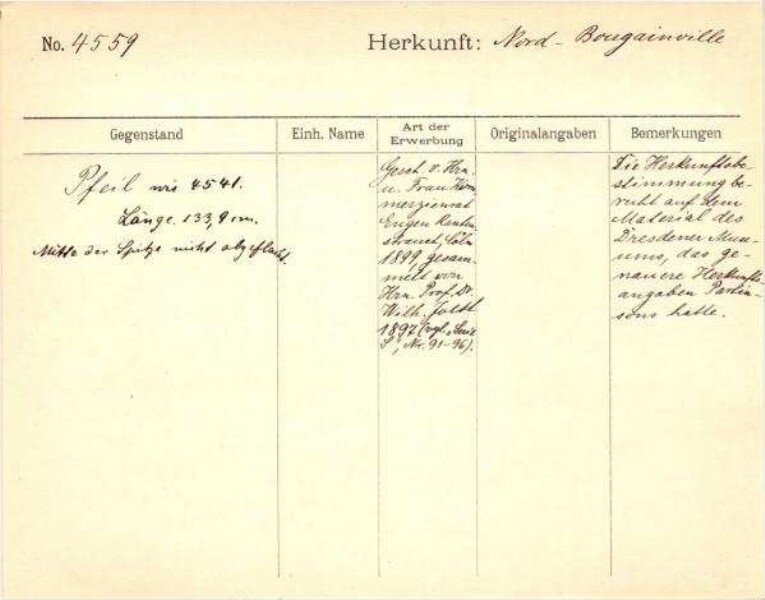 No. 4559
Herkunft: Nord - Bougainville
Gegenstand
Einh. Name
Art der
Erwerbung
Originalangaben
Bemerkungen
Pfeil wie 4541.
Länge. 133,9 cm.
Mitte der Spitze nicht abgeflacht.
Gesch. v. Hrn.
u. Frau Kom-
merzienrat
Eugen Rauten-
strauch, Cöln
1899, gesam-
melt von
Hrn. Prof. Dr.
Wilh. Joest
1897 (vgl.
S", Nr. 91-96).
Die Herkunftsbe-
stimmung be-
ruht auf dem
Material des
Dresdener Muse-
ums, das ge-
nauere Herkunfts-
angaben Parkin-
sons hatte.